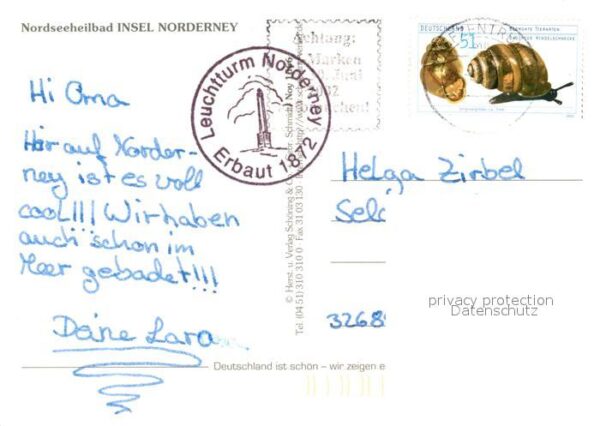 Nordseeheilbad INSEL NORDERNEY
Hi Oma
Hir auf Norder-
ney ist es voll
cool!!! Wir haben
auch schon im
Meer gebadet!!!
Deine Lara
Leuchtturm Norderney
Erbaut 1872
Achtung:
Marken
Juni
DEUTSCHLAND
51
© Herst. u. Verlag Schöning &
Tel. (04 51) 310 310 0 · Fax 31 03 130
Helga Zirbel
3268
privacy protection
Datenschutz
Deutschland ist schön – wir zeigen e